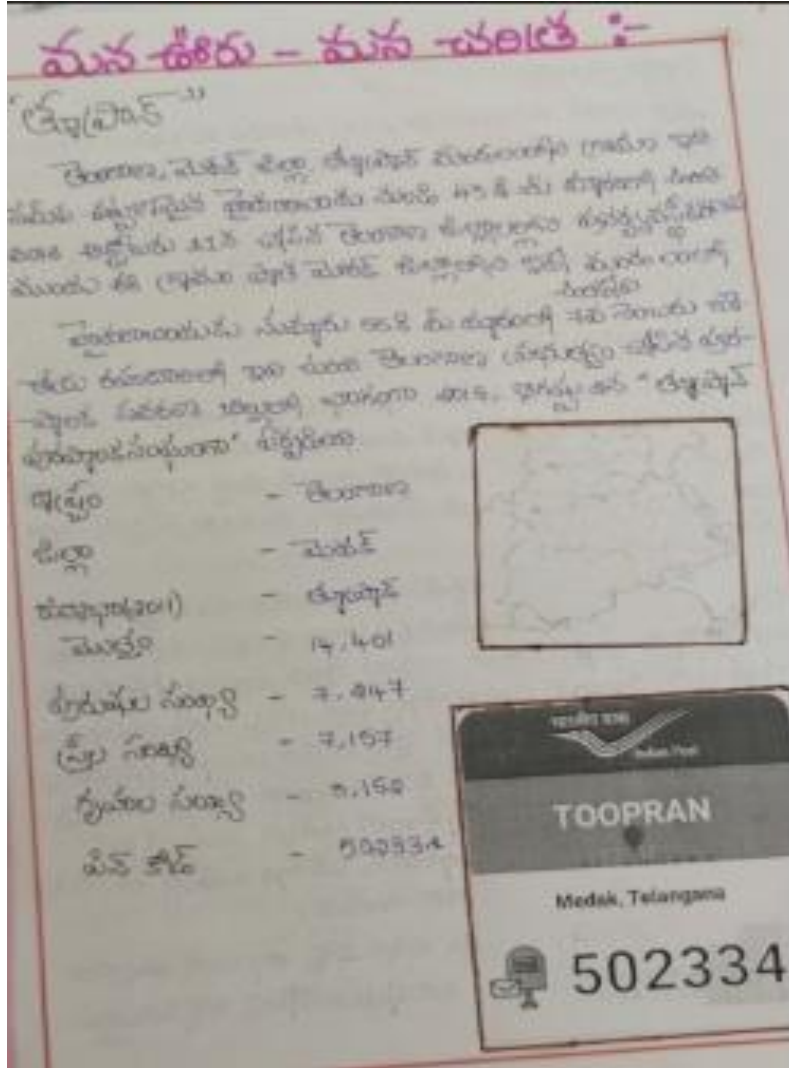 మన ఊరు - మన చరిత్ర :-
"తూప్రాన్"
తెలంగాణ, మెదక్ జిల్లా, తూప్రాన్ మండలంలోని గ్రామం ఇది
సమీప పట్టణమైన హైదరాబాదు నుండి 45 కి మీ దూరంలో
2016 అక్టోబరు 11న చేసిన తెలంగాణ జిల్లాల
ముందు ఈ గ్రామం పాత మెదక్ జిల్లాలోని ఇదే మండలంలో
ఉండేది
హైదరాబాదుకు సుమారు 55కి మీ దూరంలో
ఇది ఉంది తెలంగాణ ప్రభుత్వం చేసిన పుర-
బిల్లులో భాగంగా 2018, ఆగస్టు "తూప్రాన్
పురపాలకసంఘంగా" ఏర్పడింది
రాష్ట్రం - తెలంగాణ
జిల్లా - మెదక్
జనాభా(2011) - తూప్రాన్
మొత్తం - 14,401
పురుషుల సంఖ్య - 7,247
స్త్రీల సంఖ్య - 7,157
గృహాల సంఖ్య - 3,152
పిన్ కోడ్ - 502334
भारतीय डाक
India Post
TOOPRAN
Medak, Telangana
502334